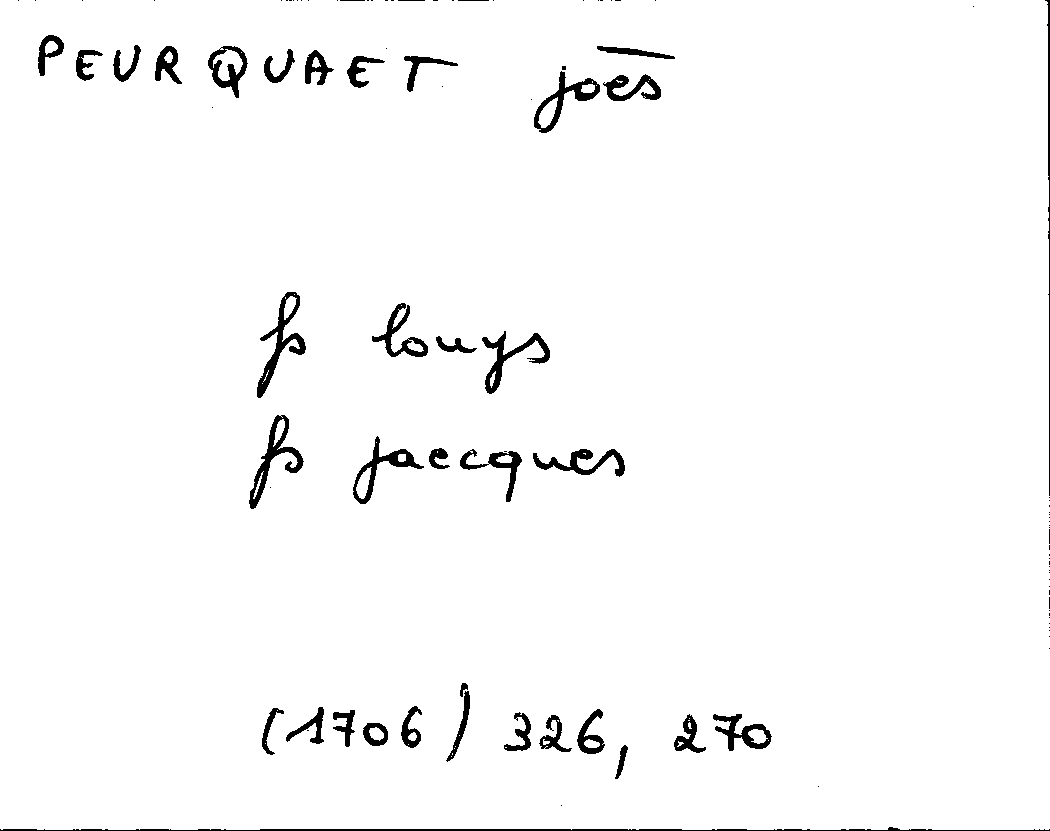 PEURQUAET joes
fs louys
fs jaecques
(1706) 326, 270